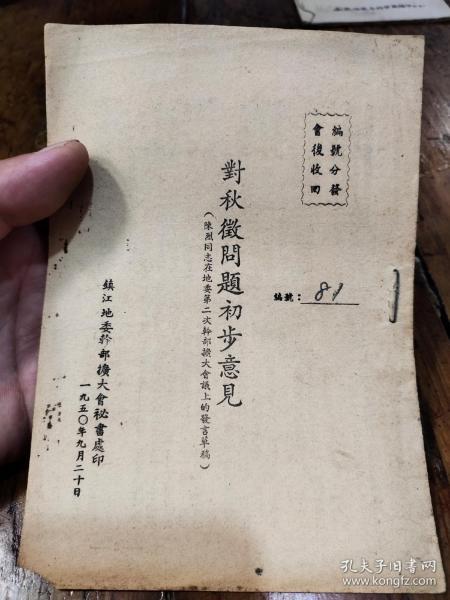 編號分發
會後收回
編號：81
對秋徵問題初步意見
（陳烈同志在地委第二次幹部擴大會議上的發言草稿）
鎮江地委幹部擴大會秘書處印
一九五〇年九月二十日
孔夫子旧书网
www.kongfz.com